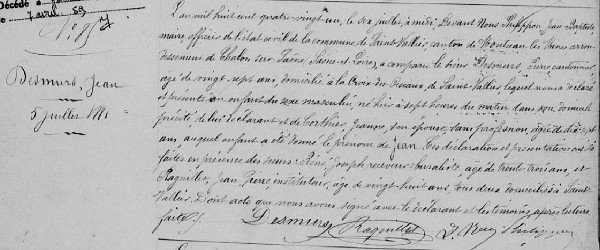 Décédé à
7 avril 59
N° 87
Desmurs, Jean
5 juillet 1881
L'an mil huit cent quatre-vingt un, le six juillet, à midi, Devant Nous Jean Baptiste
maire officier de l'état civil de la commune de Saint-Vallier, canton de Montceau les Mines arron-
dissement de Chalon sur Saône, Saône et Loire, a comparu le sieur Desmurs, Pierre cordonnier,
âgé de vingt sept ans, domicilié à la Croix des de Saint-Vallier, lequel nous a déclaré
et présenté un enfant du sexe masculin, né hier à sept heures du matin dans son domicile
précité de lui déclarant et de Jeanne, son épouse, sans profession, âgée de dix-sept
ans, auquel enfant a été donné le prénom de Jean. Ces déclaration et présentation ont été
faites en présence des sieurs René, Joseph receveur buraliste, âgé de trente trois ans, et
Ragouillet, Jean Pierre instituteur, âgé de vingt huit ans, tous deux domiciliés à Saint-
Vallier. Dont acte que nous avons signé avec le déclarant et les témoins, après lecture
faite.
Desmurs